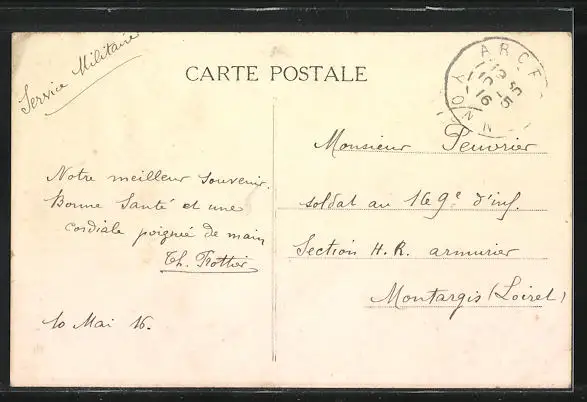 Service Militaire
CARTE POSTALE
ARCE
10-5
16
YONN
Notre meilleur souvenir.
Bonne Santé et une
cordiale poignée de main
Th. Trottier
10 Mai 16.
Monsieur Peuvrier
soldat au 169e d'inf.
Section H.R. armurier
Montargis (Loiret)